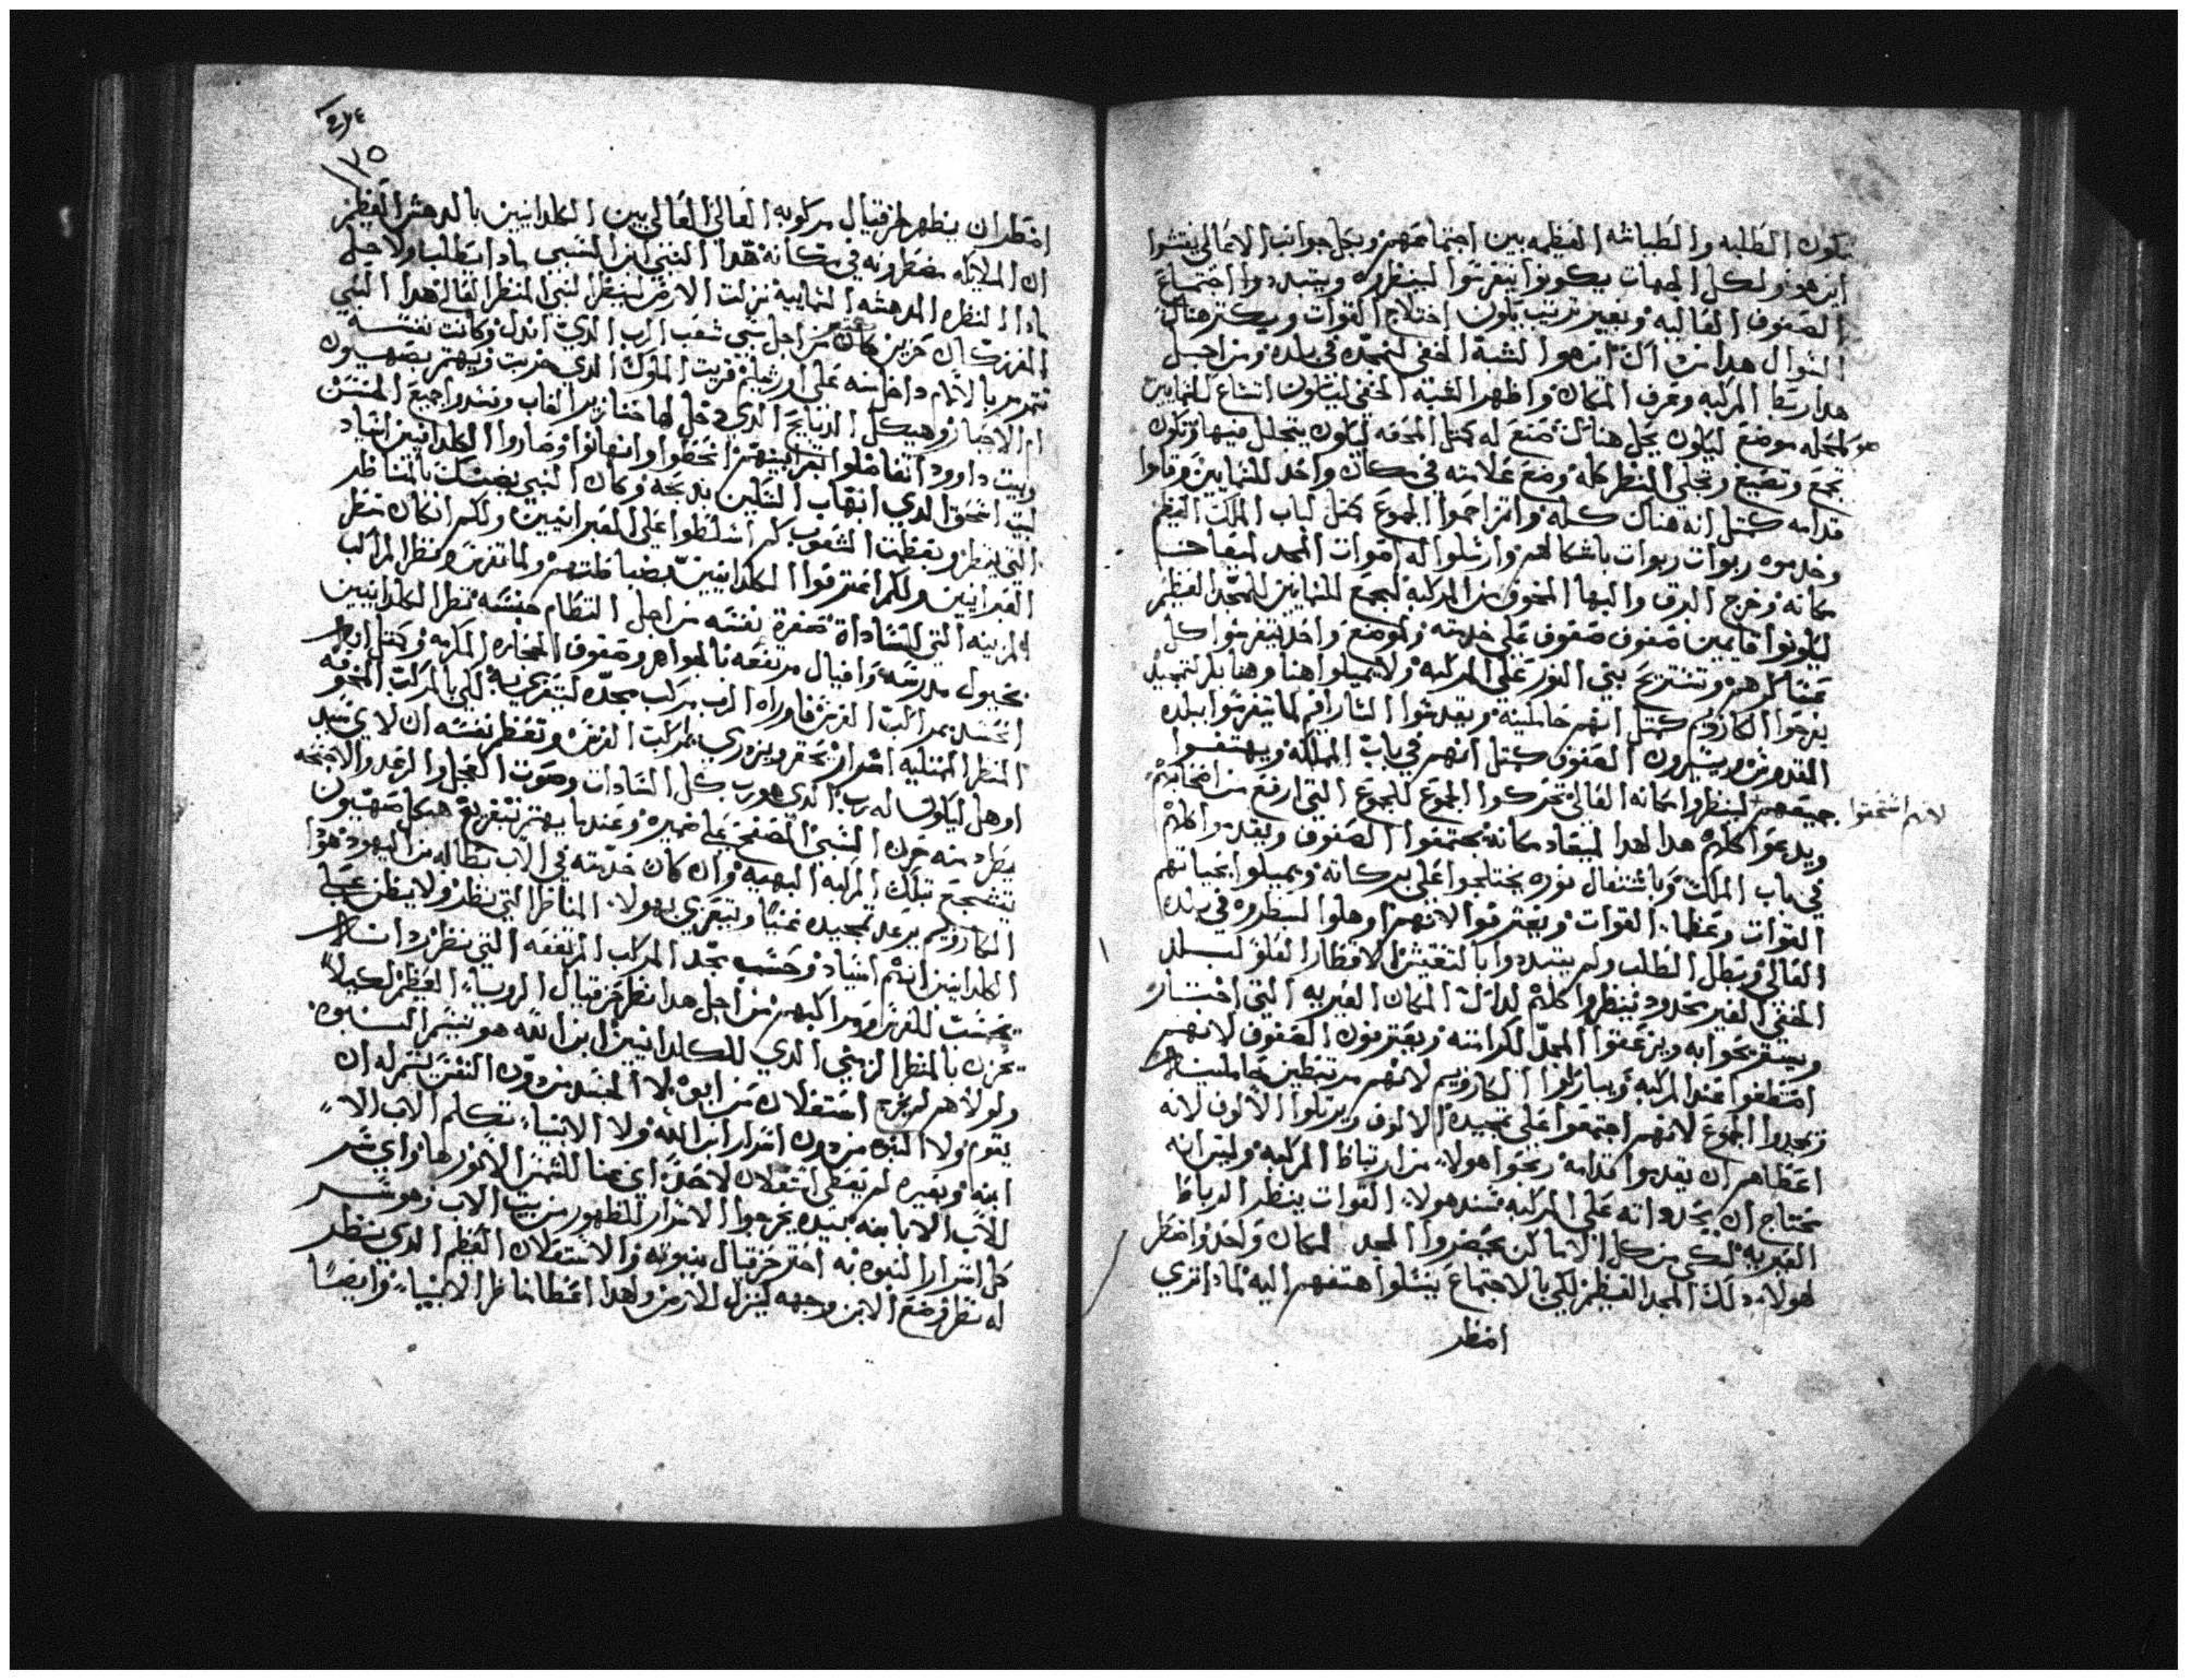 تكون الطلبه والطياشه العظيمه بين اجتماعهم وبكل جوانب الاعالي يفتشوا
اين هو ولكل الجهات يكونوا يتفرسوا لينظروه ويتبددوا اجتماع
الصفوف العاليه وبغير ترتيب يكون اختلاج القوات ويكتر هناك
السوال هدا من داك اين هو الشبه الخفي لنمجده في بلده ومن اجل
هدا ربط المركبه وعرف المكان واظهر الشبه الخفي ليكون اتساع للسمايين
هو كمحله موضع ليكون يحل هناك صنع له كمتل المحفه ليكون يتجلل فيها وتكون
تجمع وتضيع وتجلي المنظر كله وضع علامته في مكان واحد للسمايين وقاموا
قدامه كمتل انه هناك كله واتزاحموا الجموع كمتل لباب الملك العظيم
وخدموه ربوات ربوات باشكالهم وارسلوا له اصوات المجد لميعاد
مكانه وخرج البرق والبها المخوف من المركبه لتجمع السمايين للمجد العظيم
ليكونوا قايمين صفوف صفوف على خدمته ولموضع واحد يتفرسوا كل
عساكرهم وتستريح بني النور على المركبه ولا يميلوا هنا وهنا بل لتمجيد
يفرحوا الكاروبيم كمتل انهم حاملينه ويقدسوا السارافيم لما يتفرسوا ببلده
المقدوس ويتشكرون الصفوف كمتل انهم في باب المملكه ويهتفوا
جميعهم لينظروا مكانه العالي تحركوا الجموع للجموع التي ارفع من اصحابهم
لانهم استحقوا
ويدعوا كلهم هدا لهدا لميعاد مكانه يجتمعوا الصفوف ويقدموا كلهم
في باب الملك وباشتعال نوره يختلجوا على بركاته ويميلوا بحياتهم
القوات وعظما القوات ويعترفوا لانهم اوهلوا لينظروه في بلده
العالي وبطل الطلب ولم يتبددوا بالتفتيش لاقطار العلو لبلد
الخفي الغير محدود لينظروا كلهم لداك المكان الغيريه التي اختار
ويستريحوا به ويزعقوا المجد لكرامته ويعترفون الصفوف لانهم
امتطفوا عند المركبه ويباركوا الكاروبيم لانهم مرتبطين حاملينه
وتمجدوا الجموع لانهم اجتمعوا على تمجيده الالوف ويرتلوا الالوف لانه
اعطاهم ان يقدموا قدامه ربحوا هولاء من ارتباط المركبه وليس انه
محتاج ان يجدوا انه على المركبه مسند هولاء القوات ينظر الرباط
الغيريه لكي من كل الاماكن يحضروا المجد لمكان واحد واضطر
لهولاء دلك المجد العظيم لكي بالاجتماع يسلوا هتفهم اليه لمادا تري
اضطر
١٢٥
اضطر ان يظهر لحزقيال مركوبه العالي العالي بين الكلدانيين بالدهش العظيم
ان الملايكه مضطرينه في مكانه هدا النبي ابن السبي مادا يتطلب ولاجل
مادا النظره المدهشه السماييه نزلت الارض لينظر النبي المنظر العالي هدا النبي
المفرز كان حزين من اجل سبي شعب الرب الدي اندل وكانت نفسه
تتمرمر بالالام داخل منه على اورشليم قريت الملوك الدي خربت ويهتم بصهيون
ام الاحبار وهيكل الدبايح الدي دخل لها خنازير الغاب وتفسدوا جميع المنسس
وبيت داوود اتفاضلوا انحطوا وانهانوا وصاروا الكلدانيين اسياد
لبيت اسحق الدي انهاب السكين بدبحه وكان النبي يضنك بالمناظر
التي ينظر وبعظمت الشعوب كم اتسلطوا على العبرانيين ولكم انكان ينظر
العبرانيين ولكم اعترفوا الكلدانيين بضباطتهم ولما تمرمره منظر المراكب
المزينه التي للسادات صغرة نفسه من اجل النظام حينئذ نظر الكلدانيين
بخيول مدرسه وافيال مرتفعه بالجواهر وصفوف الحجاره المكرمه وكمتل انه
اتحسد بمراكب الفرس فاوراه الرب مركب مجده ليتعزى به لكي بالمركب المخوفه
المنظر الممتليه اسرار يحقر ويزدري بمركب الفرس وتعظم نفسه ان لا يسجد
اوهل ليكون له رب الدي هو رب كل السادات وصوت العجل والرعد والاجنحه
يطرد منه حزن السبي المصفح على ضميره وعندما يهتم بتفريغ هيكل صهيون
يتشجع بتلك المركبه البهيه وان كان خدمته في الاب بطاله من اليهود هودا
الكاروبيم يرعد تمجيده عنيا ويتعزي بهولاء المناظر التي نظر ولا يظن على
الكلدانيين انهم اسياد وحسب بمجد المركب المرتفعه التي نظر
بخست للفرس ومراكبهم من اجل هدا نظر حزقيال الروساء العظيم لكيلا
يحزن بالمنظر الزهي الدي للكلدانيين ابن الله هو يتيسر النبوه
ولولا هو لم يخرج استعلان من ابوه لا الجسد من دون النفس يتسر له ان
يقوم ولا النبوه من دون اسرار ابن الله ولا الانبياء يتكلم الاب الا
ابنه وبغيره لم يعطى استعلان لاحد اي ضيا للشمس الا نورها واي سر
للاب الا بابنه بيده يخرجوا الاسرار للظهور من بيت الاب وهو سر
كل اسرار النبوه به اختر حزقيال بنبوته والاستعلان العظيم الدي ينظر
له نظر وضع الابن وجهه لينزل للارض ولهدا اعطا مناظر الانبياء وايضا